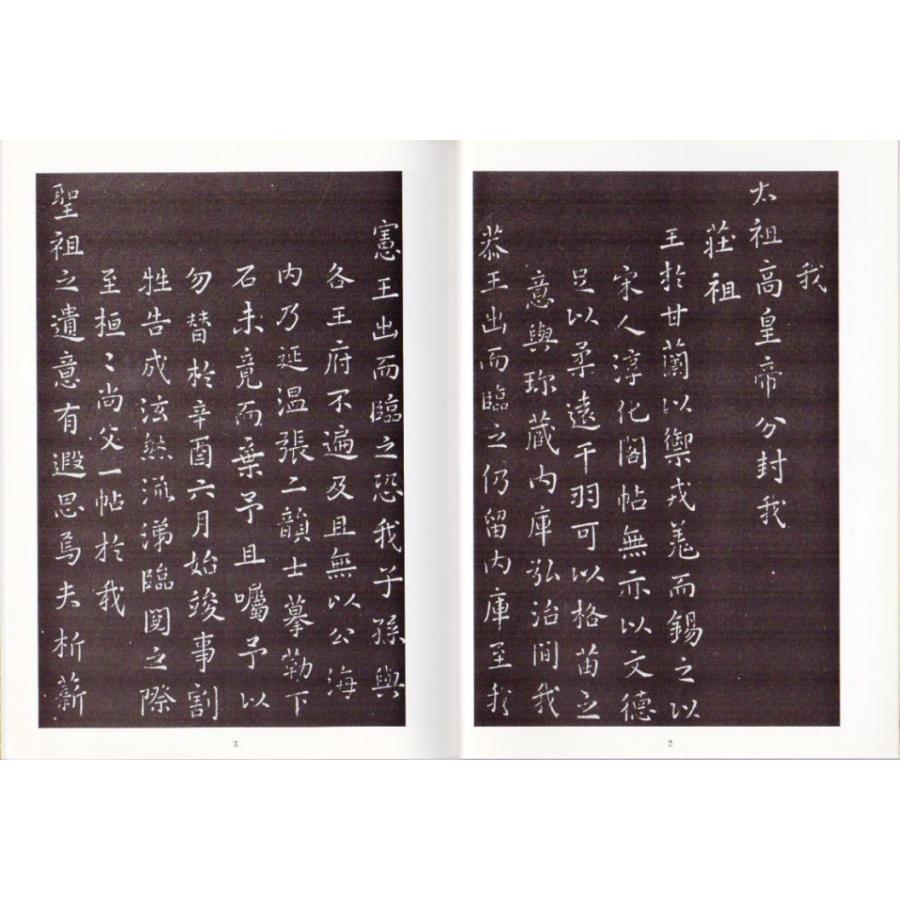 我
太祖高皇帝分封我
莊祖
王於甘蘭以禦戎羗而錫之以
宋人淳化閣帖無亦以文德
足以柔遠干羽可以格苗之
意與珎藏内庫弘治間我
恭王出而臨之仍留内庫至我
2
憲王出而臨之恐我子孫與
各王府不遍及且無以公海
内乃延温張二韻士摹勒下
石未竟而棄予且囑予以
勿替於辛酉六月始竣事割
牲告成泫然流涕臨閲之際
至桓〻尚父一帖於我
聖祖之遺意有遐思焉夫析薪
3